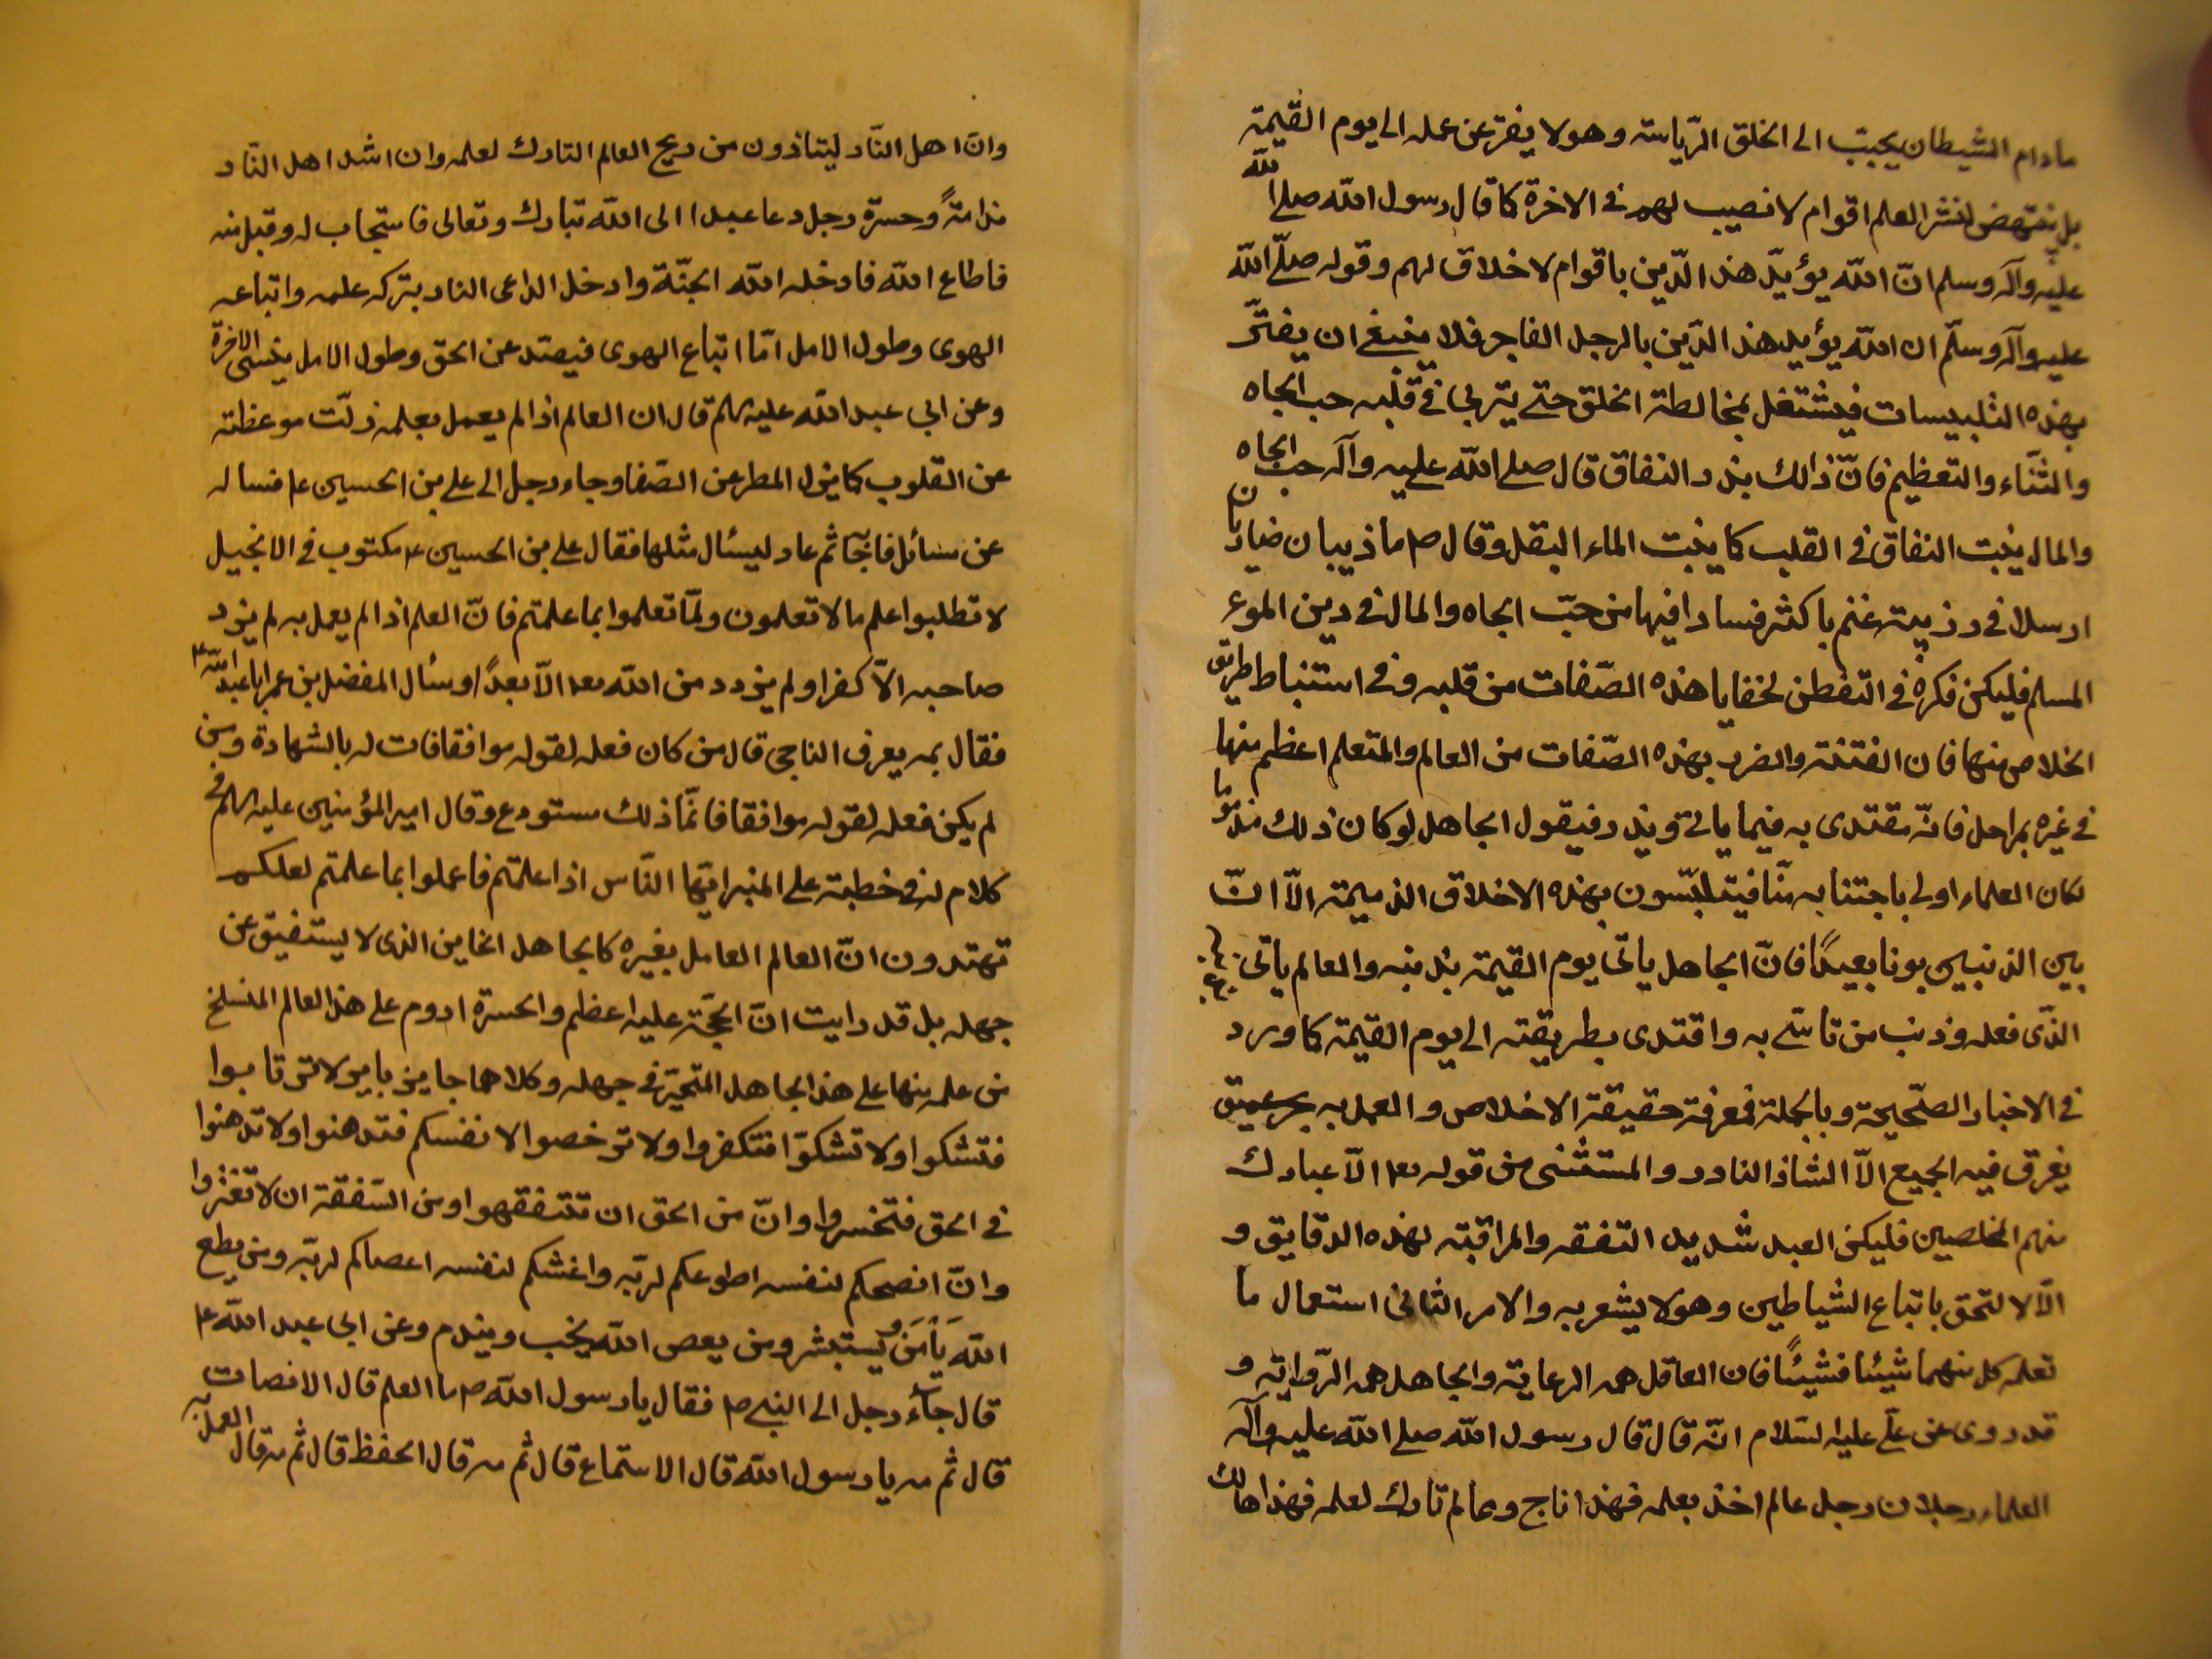 مادام الشيطان يحبب الى الخلق الرّياسة وهو لا يفتر عن عمله الى يوم القيمة
بل ينتهض لنشر العلم اقوام لا نصيب لهم فى الاخرة كما قال رسول الله صلى الله
عليه وآله وسلم انّ الله يؤيّد هذ الدّين باقوام لا خلاق لهم وقوله صلّى الله
عليه وآله وسلّم ان الله يؤيد هذ الدّين بالرجل الفاجر فلا ينبغى ان يغترّ
بهذه التلبيسات فيشتغل بمخالطة الخلق حتى يتربى فى قلبه حب الجاه
والثّناء والتعظيم فانّ ذالك بذر النفاق قال صلى الله عليه وآله حب الجاه
والمال ينبت النفاق فى القلب كما ينبت الماء البقل وقال ص ما ذيبان ضاريان
ارسلا فى زريبة غنم باكثر فسادا فيها من حبّ الجاه والمال فى دين المرء
المسلم فليكن فكره فى التفطن لخفايا هذه الصّفات من قلبه وفى استنباط طريق
الخلاص منها فان الفتنة والضرر بهذه الصّفات من العالم والمتعلم اعظم منها
فى غيره بمراحل فانّه مقتدى به فيما ياتى ويذر فيقول الجاهل لو كان ذلك مذموما
لكان العلماء اولى باجتنابه منّا فيتلبّسون بهذه الاخلاق الذميمة الّا انّ
بين الذنبين بونا بعيدًا فانّ الجاهل ياتى يوم القيمة بذنبه والعالم ياتى بذنبه
الذّى فعله وذنب من تاسّى به واقتدى بطريقته الى يوم القيمة كما ورد
فى الاخبار الصّحيحة وبالجملة فمعرفة حقيقة الاخلاص والعمل به بحر عميق
يغرق فيه الجميع الّا الشاذ النادر والمستثنى من قوله تعا الّا عبادك
منهم المخلصين فليكن العبد شديد التفقه والمراقبة لهذه الدقايق و
الّا لا لتحق باتباع الشياطين وهو لا يشعر به والامر الثانى استعمال ما
تعلمه كل منهما شيئا فشيئًا فان العاقل همه الرعاية والجاهل همه الرّواية و
قد روى عن علّى عليه السّلام انّه قال قال رسول الله صلى الله عليه وآله
العلماء رجلان رجل عالم اخذ بعلمه فهذا ناج وعالم تارك لعلمه فهذا هالك
وانّ اهل النّار ليتاذون من ريح العالم التارك لعلمه وان اشد اهل النّار
ندامةً وحسرة رجل دعا عبدا الى الله تبارك وتعالى فاستجاب له وقبل منه
فاطاع الله فادخله الله الجنّة وادخل الداعى النار بتركه علمه واتباعه
الهوى وطول الامل امّا اتباع الهوى فيصدّ عن الحق وطول الامل ينسى الاخرة
وعن ابى عبد الله عليه السلم قال ان العالم اذا لم يعمل بعلمه زلّت موعظته
عن القلوب كما يزل المطر عن الصّفا وجاء رجل الى على بن الحسين ع فساله
عن مسائل فاجاب ثم عاد ليسئال مثلها فقال على بن الحسين ع مكتوب فى الانجيل
لا تطلبوا علم ما لا تعلمون ولمّا تعلموا بما علمتم فانّ العلم اذا لم يعمل به لم يزد
صاحبه الّا كفرا ولم يزدد من الله تعا الّا بعدًا وسئال المفضل بن عمر ابا عبد الله ع
فقال بم يعرف الناجى قال من كان فعله لقوله موافقا فاثبت له بالشهادة ومن
لم يكن فعله لقوله موافقا فانّما ذلك مستودع وقال امير المؤمنين عليه السلم فى
كلام له فى خطبته على المنبر ايّها النّاس اذا علمتم فاعملوا بما علمتم لعلكم
تهتدون انّ العالم العامل بغيره كالجاهل الخاين الذى لا يستفيق عن
جهله بل قد رايت انّ الحجّة عليه اعظم والحسرة ادوم على هذ العالم المنسلخ
من علمه منها على هذ الجاهل المتحيّر فى جهله وكلاهما جاين باير لا ترتابوا
فتشكوا ولا تشكوّا فتكفروا ولا ترخصوا لانفسكم فتدهنوا ولا تدهنوا
فى الحق فتخسروا وانّ من الحق ان تتفقهوا ومن التفقه ان لا تغتروا
وانّ انصحكم لنفسه اطوعكم لربّه واغشكم لنفسه اعصاكم لربّه ومن يطع
الله يَاْمَن ويستبشر ومن يعص الله يخب ويندم وعن ابى عبد الله ع
قال جاء رجل الى النبى ص فقال يا رسول الله ص ما العلم قال الانصات
قال ثم مه يا رسول الله قال الاستماع قال ثم مه قال الحفظ قال ثم مه قال العمل به